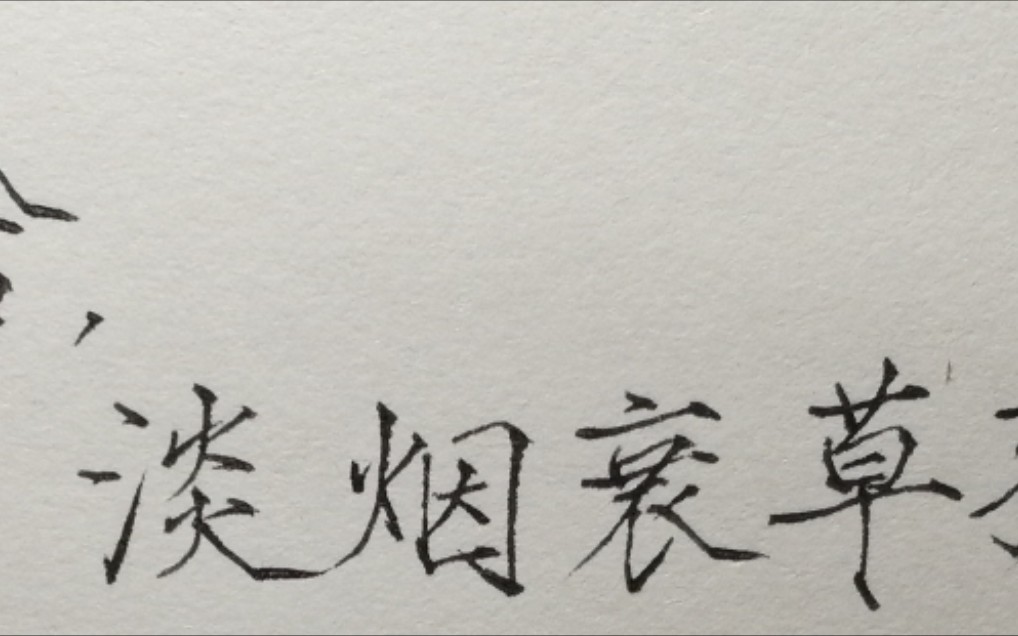 ，淡烟衰草